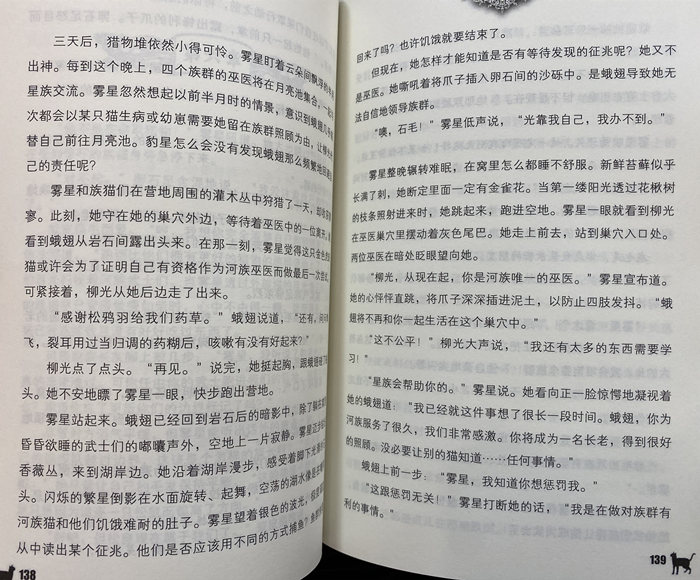 三天后，猎物堆依然小得可怜。雾星盯着云朵间飘浮的
出神。每到这个晚上，四个族群的巫医将在月亮池集合，
星族交流。雾星忽然想起以前半月时的情景，意识到蛾翅几乎
次都会以某只猫生病或幼崽需要她留在族群照顾为由，让柳光
替自己前往月亮池。豹星怎么会没有发现蛾翅那么频繁地
己的责任呢？
雾星和族猫们在营地周围的灌木丛中狩猎了一天，却收获寥
寥。此刻，她守在她的巢穴外边，等待着巫医中的一位离开。
看到蛾翅从岩石间露出头来。在那一刻，雾星觉得这只金色
猫或许会为了证明自己有资格作为河族巫医而做最后一次尝试，
可紧接着，柳光从她后边走了出来。
“感谢松鸦羽给我们药草。”蛾翅说道，“还有，问问
飞，裂耳用过当归调的药糊后，咳嗽有没有好起来？”
柳光点了点头。“再见。”说完，她挺起胸，跟蛾翅
头。她不安地瞟了雾星一眼，快步跑出营地。
雾星站起来。蛾翅已经回到岩石后的暗影中，除了躺在
昏昏欲睡的武士们的嘟囔声外，空地上一片寂静。雾星
香薇丛，来到湖岸边。她沿着湖岸漫步，感受着脚下光滑的
头。闪烁的繁星倒影在水面旋转、起舞，空荡的湖水像是
河族猫和他们饥饿难耐的肚子。雾星望着银色的波光，
从中读出某个征兆。他们是否应该用不同的方式捕鱼？
138
回来了吗？也许饥饿就要结束了。
但现在，她怎样才能知道是否有等待发现的征兆呢？她又不
是巫医。她嘶吼着将爪子插入卵石间的沙砾中。是蛾翅导致她无
法自信地领导族群。
“噢，石毛！”雾星低声说，“光靠我自己，我办不到。”
雾星整晚辗转难眠，在窝里怎么都睡不舒服。新鲜苔藓似乎
长满了刺，她断定里面一定有金雀花。当第一缕阳光透过花楸树
的枝条照射进来时，她跳起来，跑进空地。雾星一眼就看到柳光
在巫医巢穴里摆动着灰色尾巴。她走上前去，站到巢穴入口处。
两位巫医在暗处眨眼望向她。
“柳光，从现在起，你是河族唯一的巫医。”雾星宣布道。
她的心怦怦直跳，将爪子深深插进泥土，以防止四肢发抖。“蛾
翅将不再和你一起生活在这个巢穴中。”
“这不公平！”柳光大声说，“我还有太多的东西需要学
习！”
“星族会帮助你的。”雾星说。她看向正一脸惊愕地凝视着
她的蛾翅道：“我已经就这件事想了很长一段时间。蛾翅，你为
河族服务了很久，我们非常感激。你将成为一名长老，得到很好
的照顾。没必要让别的猫知道……任何事情。”
蛾翅上前一步。“雾星，我知道你想惩罚我。”
“这跟惩罚无关！”雾星打断她的话，“我是在做对族群有
利的事情。”
139